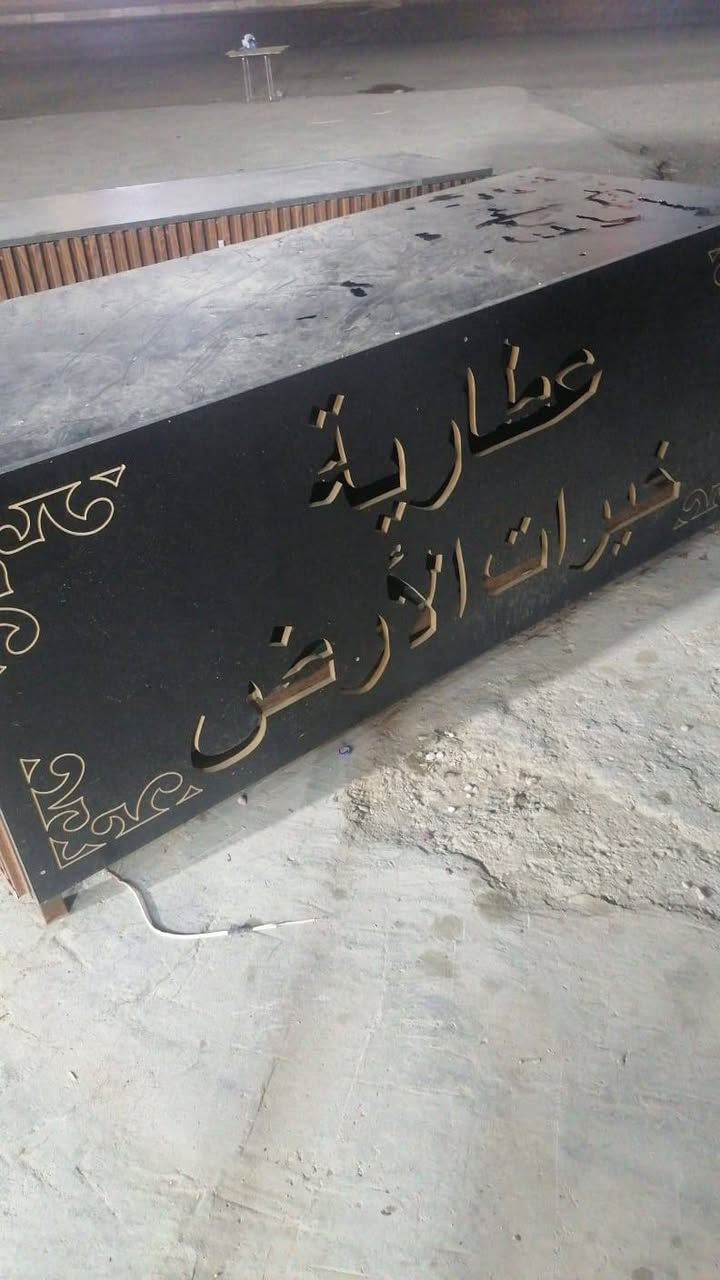 عطارية
خيرات الأرض